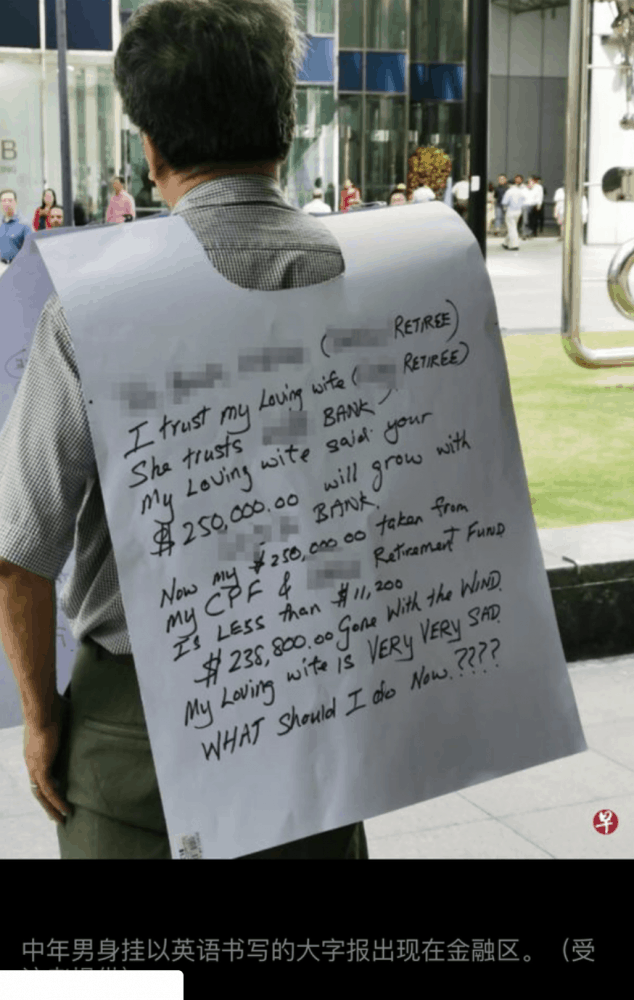 B
(RETIREE)
I trust my Loving wife (RETIREE)
She trusts BANK,
My Loving wife said your
$250,000.00 will grow with
BANK.
Now my $250,000.00 taken from
My CPF & Retirement FUND
Is LESS than $11,200
$238,800.00 Gone With the WIND.
My Loving wife IS VERY VERY SAD
WHAT Should I do Now.????
早
中年男身挂以英语书写的大字报出现在金融区。（受